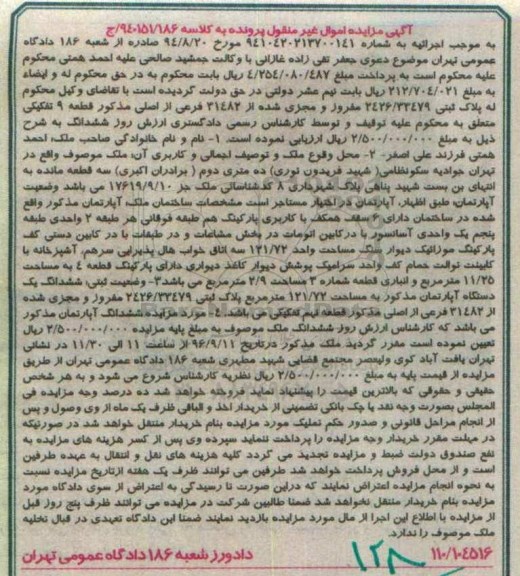 آگهی مزایده اموال غیر منقول پرونده به کلاسه ۹۴۰۱۵۱/۱۸۶/ج
به موجب اجرائیه به شماره ۹۴۱۰۴۲۰۲۱۳۷۰۰۱۴۱ مورخ ۹۴/۸/۲۰ صادره از شعبه ۱۸۶ دادگاه
عمومی تهران موضوع دعوی جعفر نقی زاده غازانی با وکالت جمشید صالحی علیه احمد همتی محکوم
علیه محکوم است به پرداخت مبلغ ۴/۲۵۴/۰۸۰/۴۸۷ ریال بابت محکوم به در حق محکوم له و ایضاء
به مبلغ ۲۱۲/۷۰۴/۰۲۱ ریال بابت نیم عشر دولتی در حق دولت گردیده است با تقاضای وکیل محکوم
له پلاک ثبتی ۲۴۲۶/۳۳۴۷۹ مفروز و مجزی شده از ۳۱۴۸۲ فرعی از اصلی مذکور قطعه ۹ تفکیکی
متعلق به محکوم علیه توقیف و توسط کارشناس رسمی دادگستری ارزش روز ششدانگ به شرح
ذیل به مبلغ ۲/۵۰۰/۰۰۰/۰۰۰ ریال ارزیابی نموده است. ۱- نام و نام خانوادگی صاحب ملک: احمد
همتی فرزند علی اصغر- ۲- محل وقوع ملک و توصیف اجمالی و کاربری آن: ملک موصوف واقع در
تهران جوادیه سکونظامی( شهید فریدون نوری) ده متری دوم ( برادران اکبری) سه قطعه مانده به
انتهای بن بست شهید پناهی پلاک شهرداری ۸ کدشناسائی ملک جز ۱۷۶۱۹/۹/۱۰ می باشد وضعیت
آپارتمان: طبق اظهار، آپارتمان در اختیار مستاجر است مشخصات ساختمان ملک: آپارتمان مذکور واقع
شده در ساختمان دارای ۶ سقف همکف با کاربری پارکینگ هم طبقه فوقانی هر طبقه ۲ واحدی طبقه
پنجم یک واحدی آسانسور با دربکابین اتومات در بخش مشاعات و در طبقات با در کابین دستی کف
پارکینگ موزائیک دیوار سنگ مساحت واحد ۱۲۱/۷۲ سه اتاق خواب هال پذیرایی سرهم، آشپزخانه با
کابینت توالت حمام کف واحد سرامیک پوشش دیوار کاغذ دیواری دارای پارکینگ قطعه ۴ به مساحت
۱۱/۲۵ مترمربع و انباری قطعه شماره ۳ مساحت ۲/۹ مترمربع می باشد. ۳- وضعیت ثبتی: ششدانگ یک
دستگاه آپارتمان مذکور به مساحت ۱۲۱/۷۲ مترمربع پلاک ثبتی ۲۴۲۶/۳۳۴۷۹ مفروز و مجزی شده
از ۳۱۴۸۲ فرعی از اصلی مذکور قطعه نهم تفکیکی می باشد. ۴- مورد مزایده: ششدانگ آپارتمان مذکور
می باشد که کارشناس ارزش روز ششدانگ ملک موصوف به مبلغ پایه مزایده ۲/۵۰۰/۰۰۰/۰۰۰ ریال
تعیین نموده است مقرر گردید ملک مذکور درتاریخ ۹۶/۹/۱۱ از ساعت ۱۱ الی ۱۱/۳۰ در نشانی
تهران یافت آباد کوی ولیعصر مجتمع قضایی شهید مطهری شعبه ۱۸۶ دادگاه عمومی تهران از طریق
مزایده از قیمت پایه به مبلغ ۲/۵۰۰/۰۰۰/۰۰۰ ریال نظریه کارشناس شروع می شود و به هر شخص
حقیقی و حقوقی که بالاترین قیمت را پیشنهاد نماید فروخته خواهد شد ده درصد وجه مزایده فی
المجلس بصورت وجه نقد یا چک بانکی تضمینی از خریدار اخذ و الباقی ظرف یک ماه از وی وصول و پس
از انجام مراحل قانونی و صدور حکم تملیک مورد مزایده بنام خریدار منتقل خواهد شد در صورتیکه
در مهلت مقرر خریدار وجه مزایده را پرداخت ننماید سپرده وی پس از کسر هزینه های مزایده به
نفع صندوق دولت ضبط و مزایده تجدید می گردد کلیه هزینه های نقل و انتقال به عهده طرفین
است و از محل فروش پرداخت خواهد شد طرفین می توانند ظرف یک هفته ازتاریخ مزایده نسبت
به نحوه انجام مزایده اعتراض نمایند که دراین صورت تا رسیدگی به اعتراض از سوی دادگاه مورد
مزایده بنام خریدار منتقل نخواهد شد ضمنا طالبین شرکت در مزایده می توانند ظرف پنج روز قبل
از مزایده با اطلاع این اجرا از مال مورد مزایده بازدید نمایند ضمنا این دادگاه تعهدی در قبال تخلیه
ملک موصوف را ندارد.
۱۱۰/۱۰۴۵۱۶ دادورز شعبه ۱۸۶ دادگاه عمومی تهران
۱۲۸